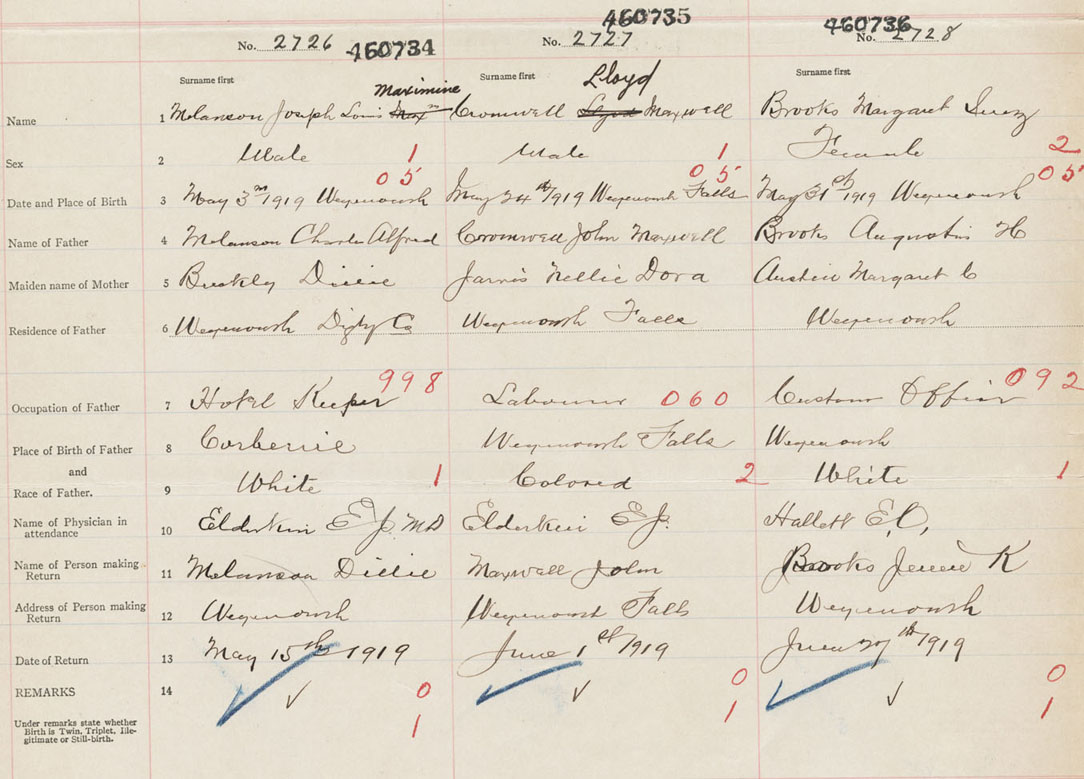 460734 460735 460736
No. 2726 No. 2727 No. 2728
Surname first Surname first Surname first
Maximine Lloyd
Name 1 Melanson Joseph Louis Cromwell Lloyd Maxwell Brooks Margaret
Sex 2 Male 1 Male 1 Female 2
05 05 05
Date and Place of Birth 3 May 3rd 1919 Weymouth May 24th 1919 Weymouth Falls May 31st 1919 Weymouth
Name of Father 4 Melanson Charles Alfred Cromwell John Maxwell Brooks Augustis H
Maiden name of Mother 5 Dillie Jarvis Nellie Dora Austin Margaret C
Residence of Father 6 Weymouth Digby Co Weymouth Falls Weymouth
998 060 092
Occupation of Father 7 Hotel Keeper Labourer Custom Officer
Place of Birth of Father 8 Corberrie Weymouth Falls Weymouth
and
Race of Father. 9 White 1 Colored 2 White 1
Name of Physician in
attendance 10 Elderkin E J. M D Elderkin E J. Hallett E L,
Name of Person making
Return 11 Melanson Dillie Maxwell John Brooks Jennie K
Address of Person making
Return 12 Weymouth Weymouth Falls Weymouth
Date of Return 13 May 15th 1919 June 1st 1919 June 27th 1919
REMARKS 14 ✓ 0 ✓ 0 ✓ 0
Under remarks state whether
Birth is Twin, Triplet, Ille-
gitimate or Still-birth. 1 1 1